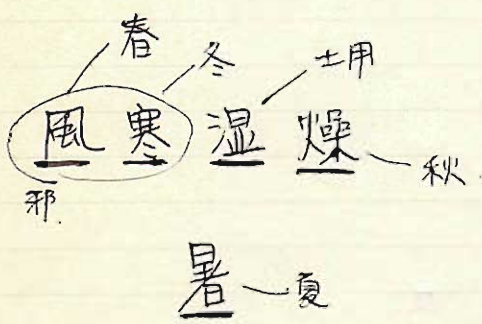 春
冬
土用
風 寒 湿 燥
秋
邪
暑 夏